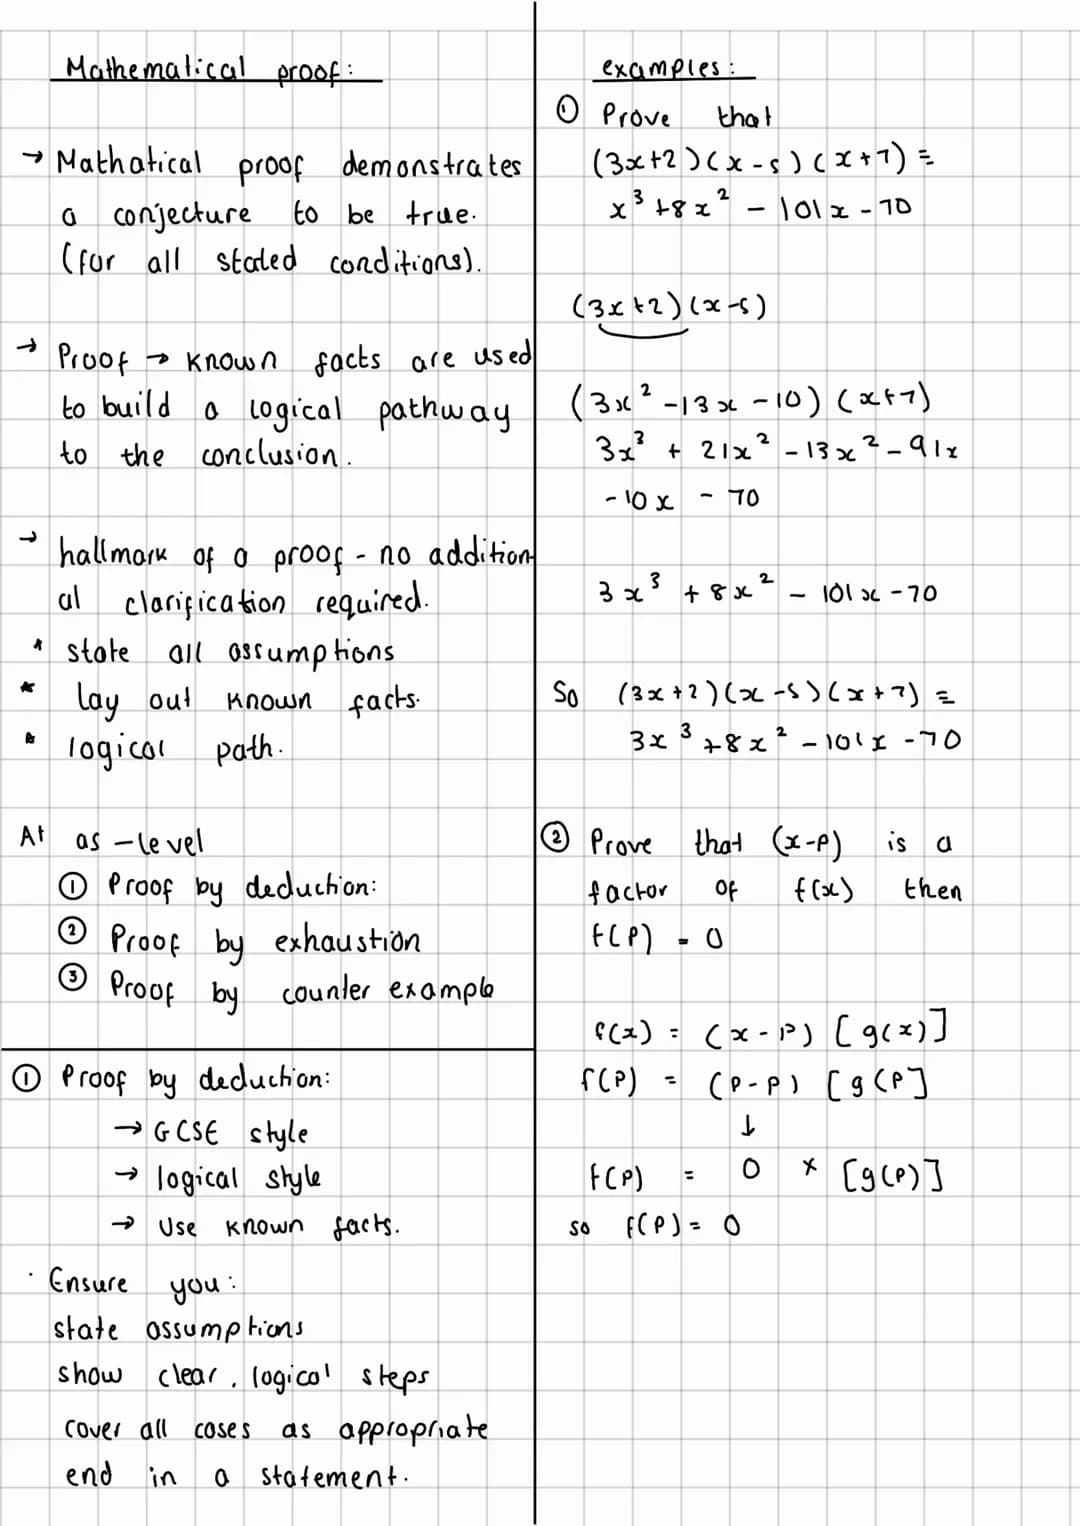 Mathematical proof:
→ Mathatical proof demonstrates
a conjecture to be true.
(for all stated conditions).
→ Proof → known facts are used
to build a logical pathway
to the conclusion.
→ hallmark of a proof - no addition
al clarification required.
* state all assumptions
* lay out known facts.
* logical path.
At as-level
① Proof by deduction:
② Proof by exhaustion
③ Proof by counter example
① Proof by deduction:
→ GCSE style
→ logical style
→ Use known facts.
· Ensure you:
state assumptions
show clear, logical steps
cover all cases as appropriate
end in a statement.
examples:
① Prove that
(3x+2)(x-5)(x+7) =
x³+8x² - 101x - 70
(3x+2)(x-5)
(3x²-13x-10)(x+7)
3x³ + 21x² - 13x² - 91x
-10x - 70
3x³ + 8x² - 101x - 70
So (3x+2)(x-5)(x+7) =
3x³+8x² - 101x - 70
② Prove that (x-p) is a
factor of f(x) then
f(p) = 0
f(x) = (x-p) [g(x)]
f(p) = (p-p) [g(p]
↓
f(p) = 0 × [g(p)]
so f(p) = 0